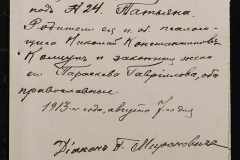 подъ № 24. Татьяна.
Родители ея и. об. псаломщика
Николай Константиновичъ
и законная жена
его Параскева Гаврiилова, оба
православные.
1913 года, августа 7 дня
Дiаконъ